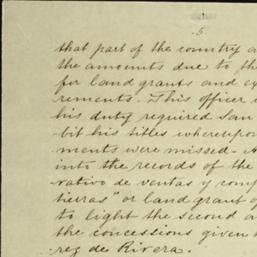 5.
that part of the country a
the amounts due to th
for land grants and ex
rements. This officer
his duty required San
bit his titles whereupon
ments were missed - A
into the records of the
rativo de ventas y comp
tierras" or land grant o
to light the second a
the concessions given
rez de Rivera.